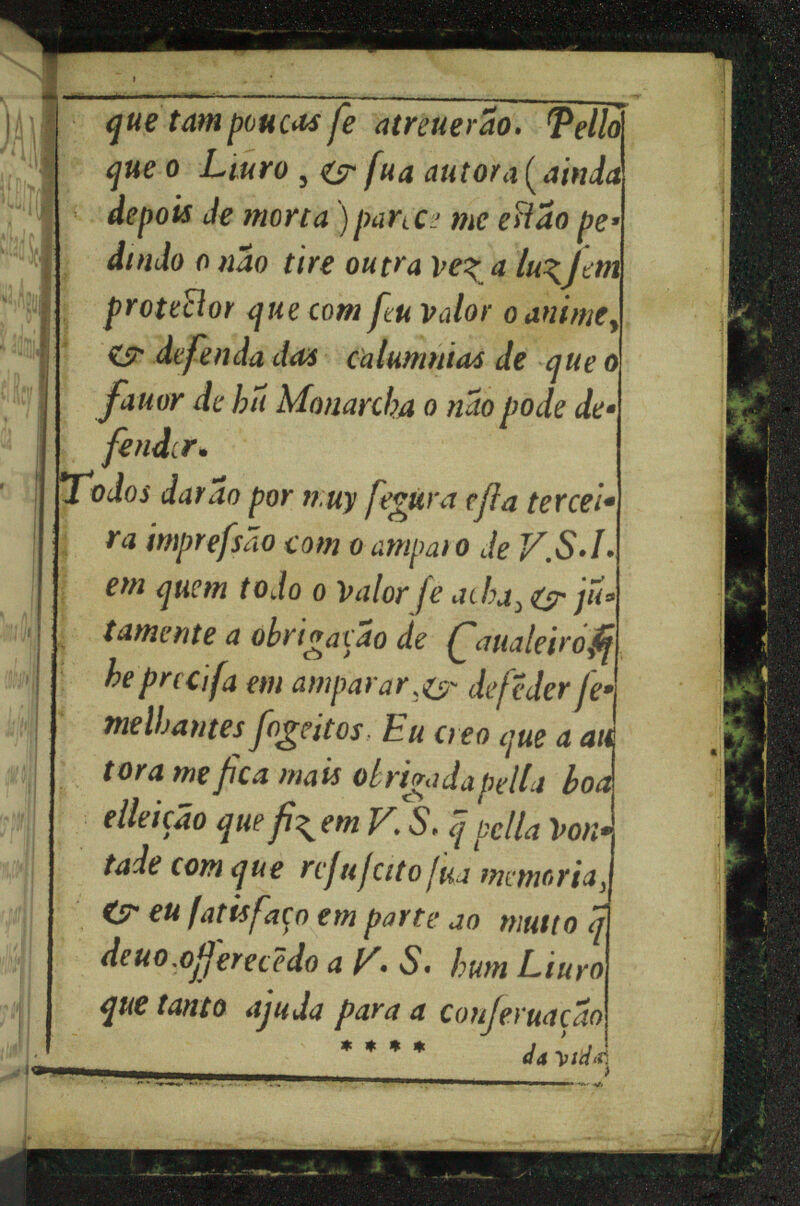 que tam poucas ſe atreuerão. Pello
que o Liuro , & ſua autora ( ainda
depois de morta ) parece me eſtão pe-
dindo o não tire outra vez a luz ſem
protector que com ſeu valor o anime,
& defenda das calumnias de que o
fauor de hũ Monarcha o não pode de-
fender.
Todos darão por muy ſegura eſta tercei-
ra impreſsão com o amparo de V.S.I.
em quem todo o valor ſe acha, & jũ-
tamente a obrigação de Caualeiro q̃
he preciſa em amparar, & defẽder ſe-
melhantes ſogeitos. Eu creo que a au
tora me fica mais obrigada pella boa
elleição que fiz em V. S. q̃ pella von-
tade com que reſuſcito ſua memoria,
& eu ſatisfaço em parte ao muito q̃
deuo.offerecẽdo a V. S. hum Liuro
que tanto ajuda para a conſeruação
* * * * da vida